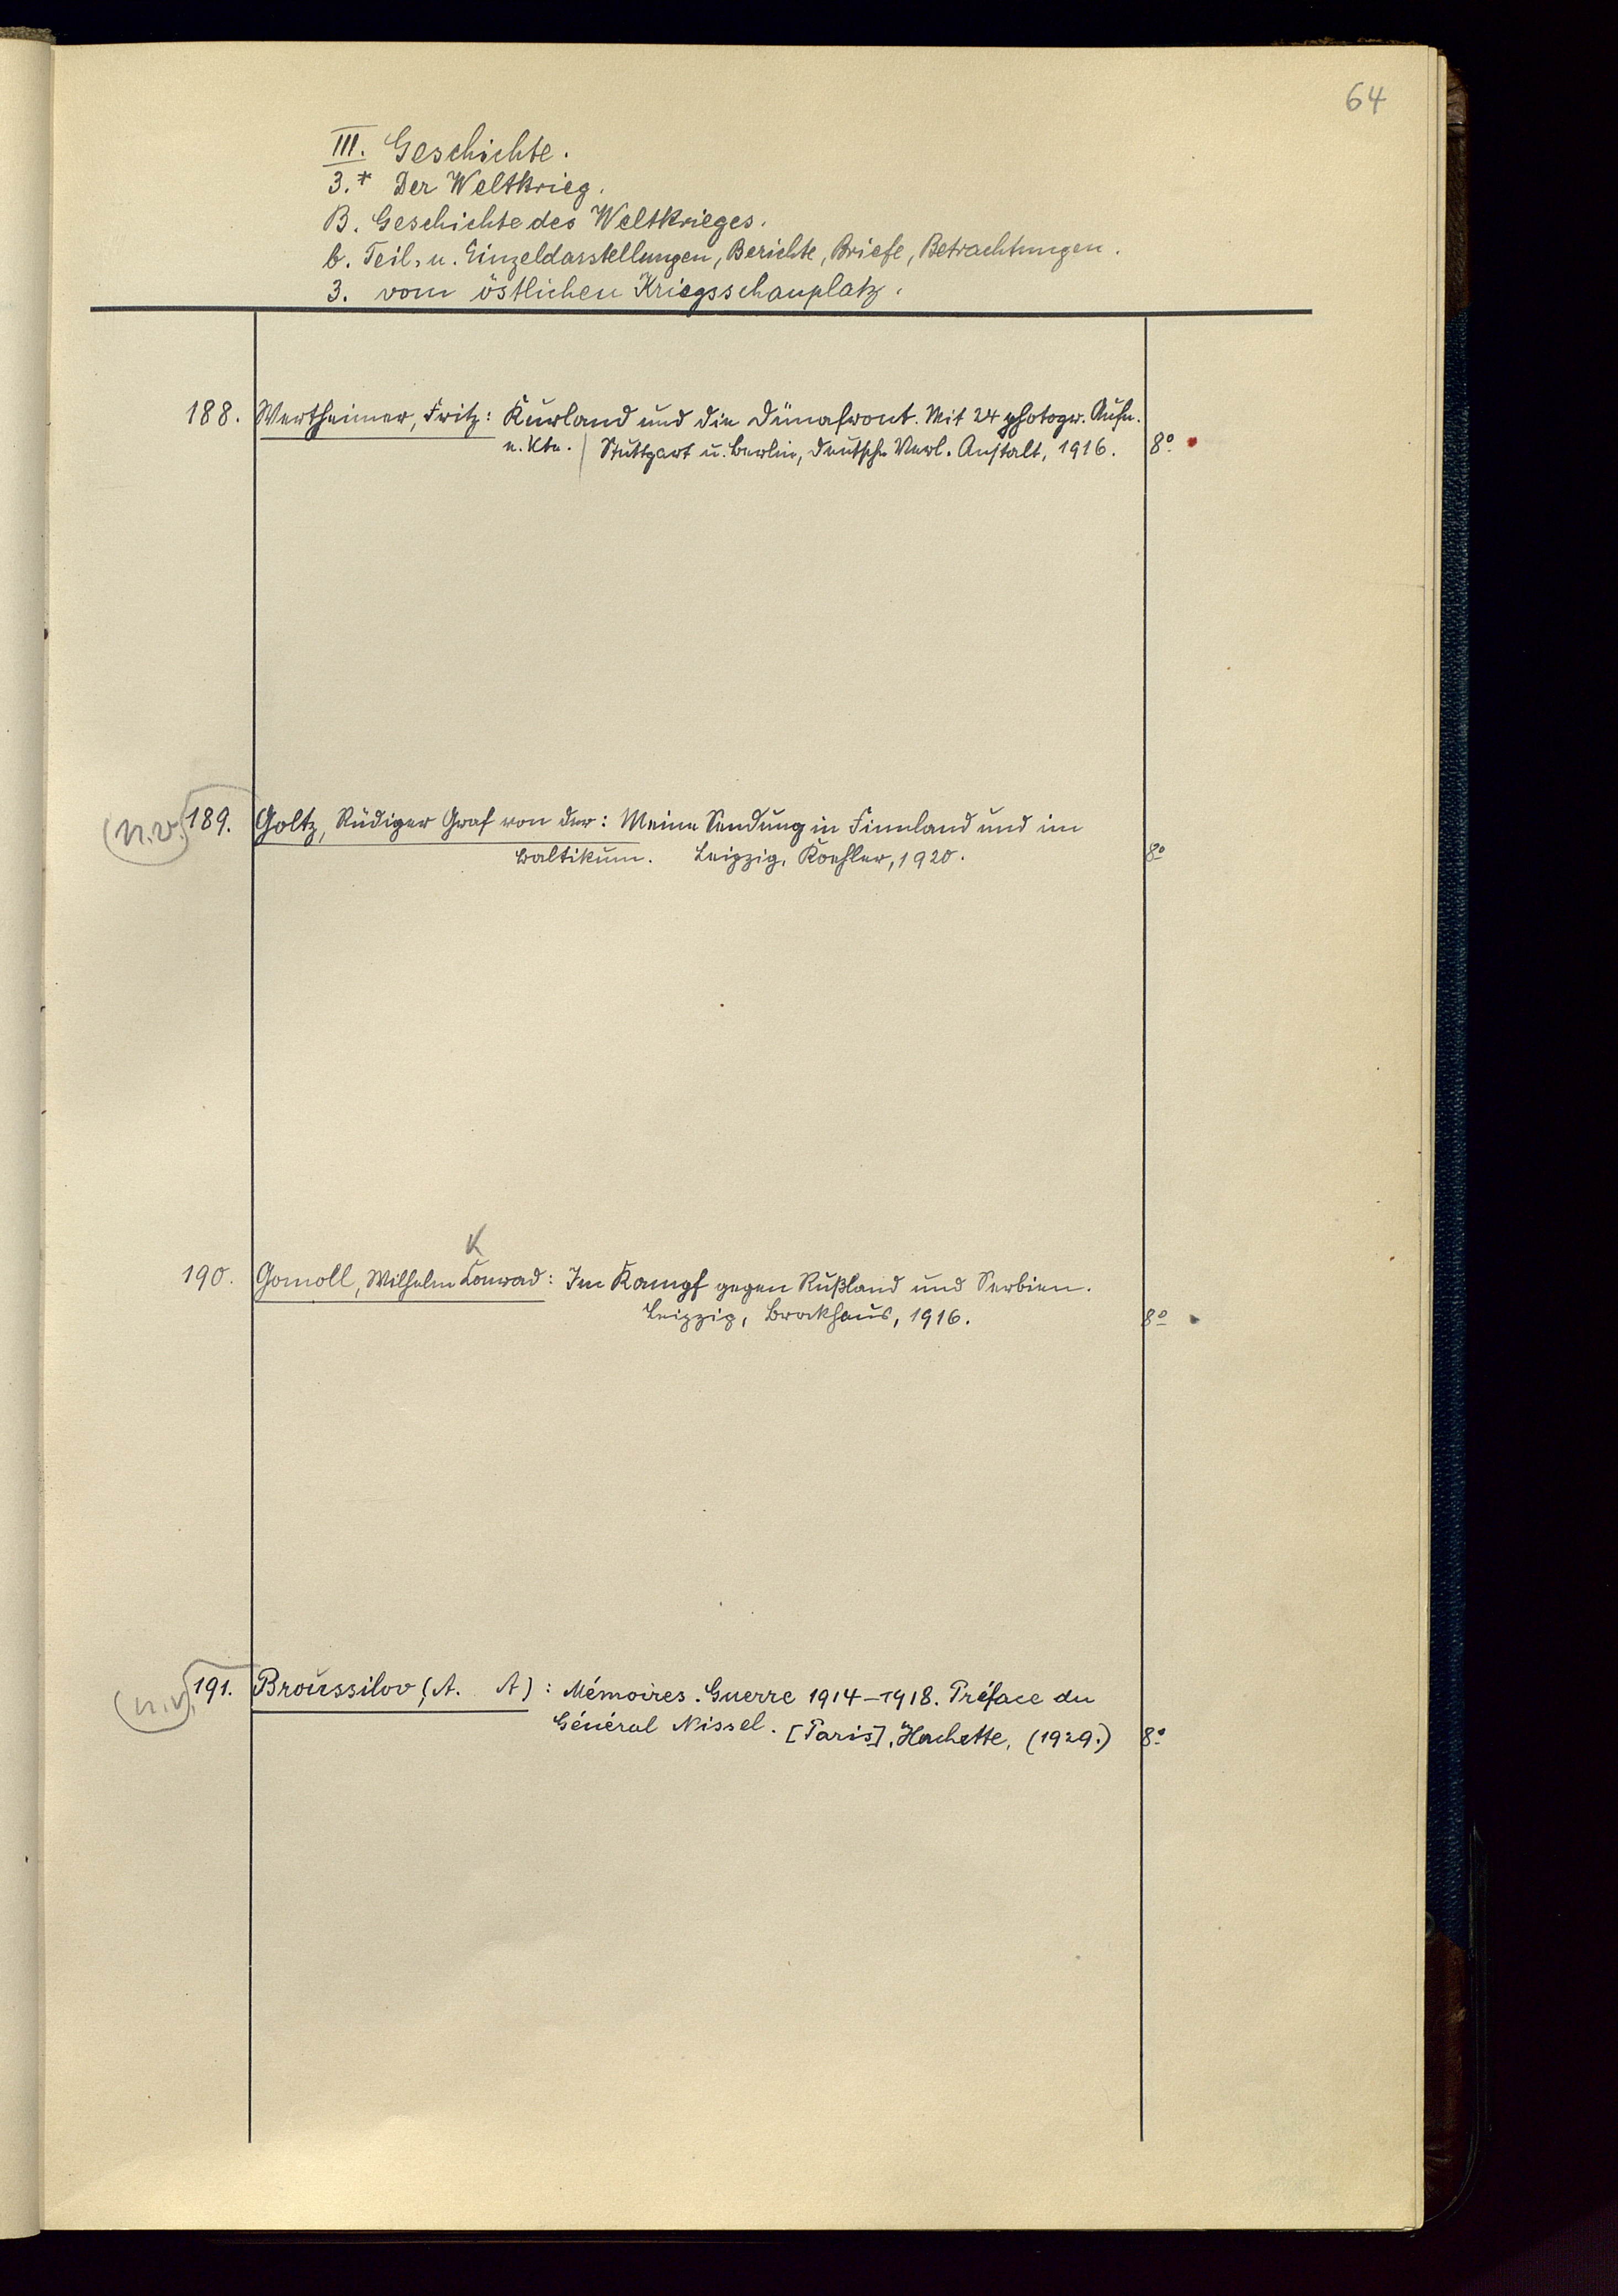 64
III. Geschichte.
3.* Der Weltkrieg.
B. Geschichte des Weltkrieges.
b. Teil- u. Einzeldarstellungen, Berichte, Briefe, Betrachtungen.
3. vom östlichen Kriegsschauplatz.
188. Wertheimer, Fritz: Kurland und die Dünafront. Mit 24 photogr. Aufn.
u. Kte. / Stuttgart u. Berlin, Deutsche Verl. Anstalt, 1916. 8º
(n.v.) 189. Goltz, Rüdiger Graf von der: Meine Sendung in Finnland und im
Baltikum. Leipzig, Koehler, 1920. 8º
K
190. Gomoll, Wilhelm Conrad: Im Kampf gegen Rußland und Serbien.
Leipzig, Brockhaus, 1916. 8º
(n.v.) 191. Broussilov, (A. A): Mémoires. Guerre 1914-1918. Préface du
Général Nissel. [Paris], Hachette, (1929.) 8º